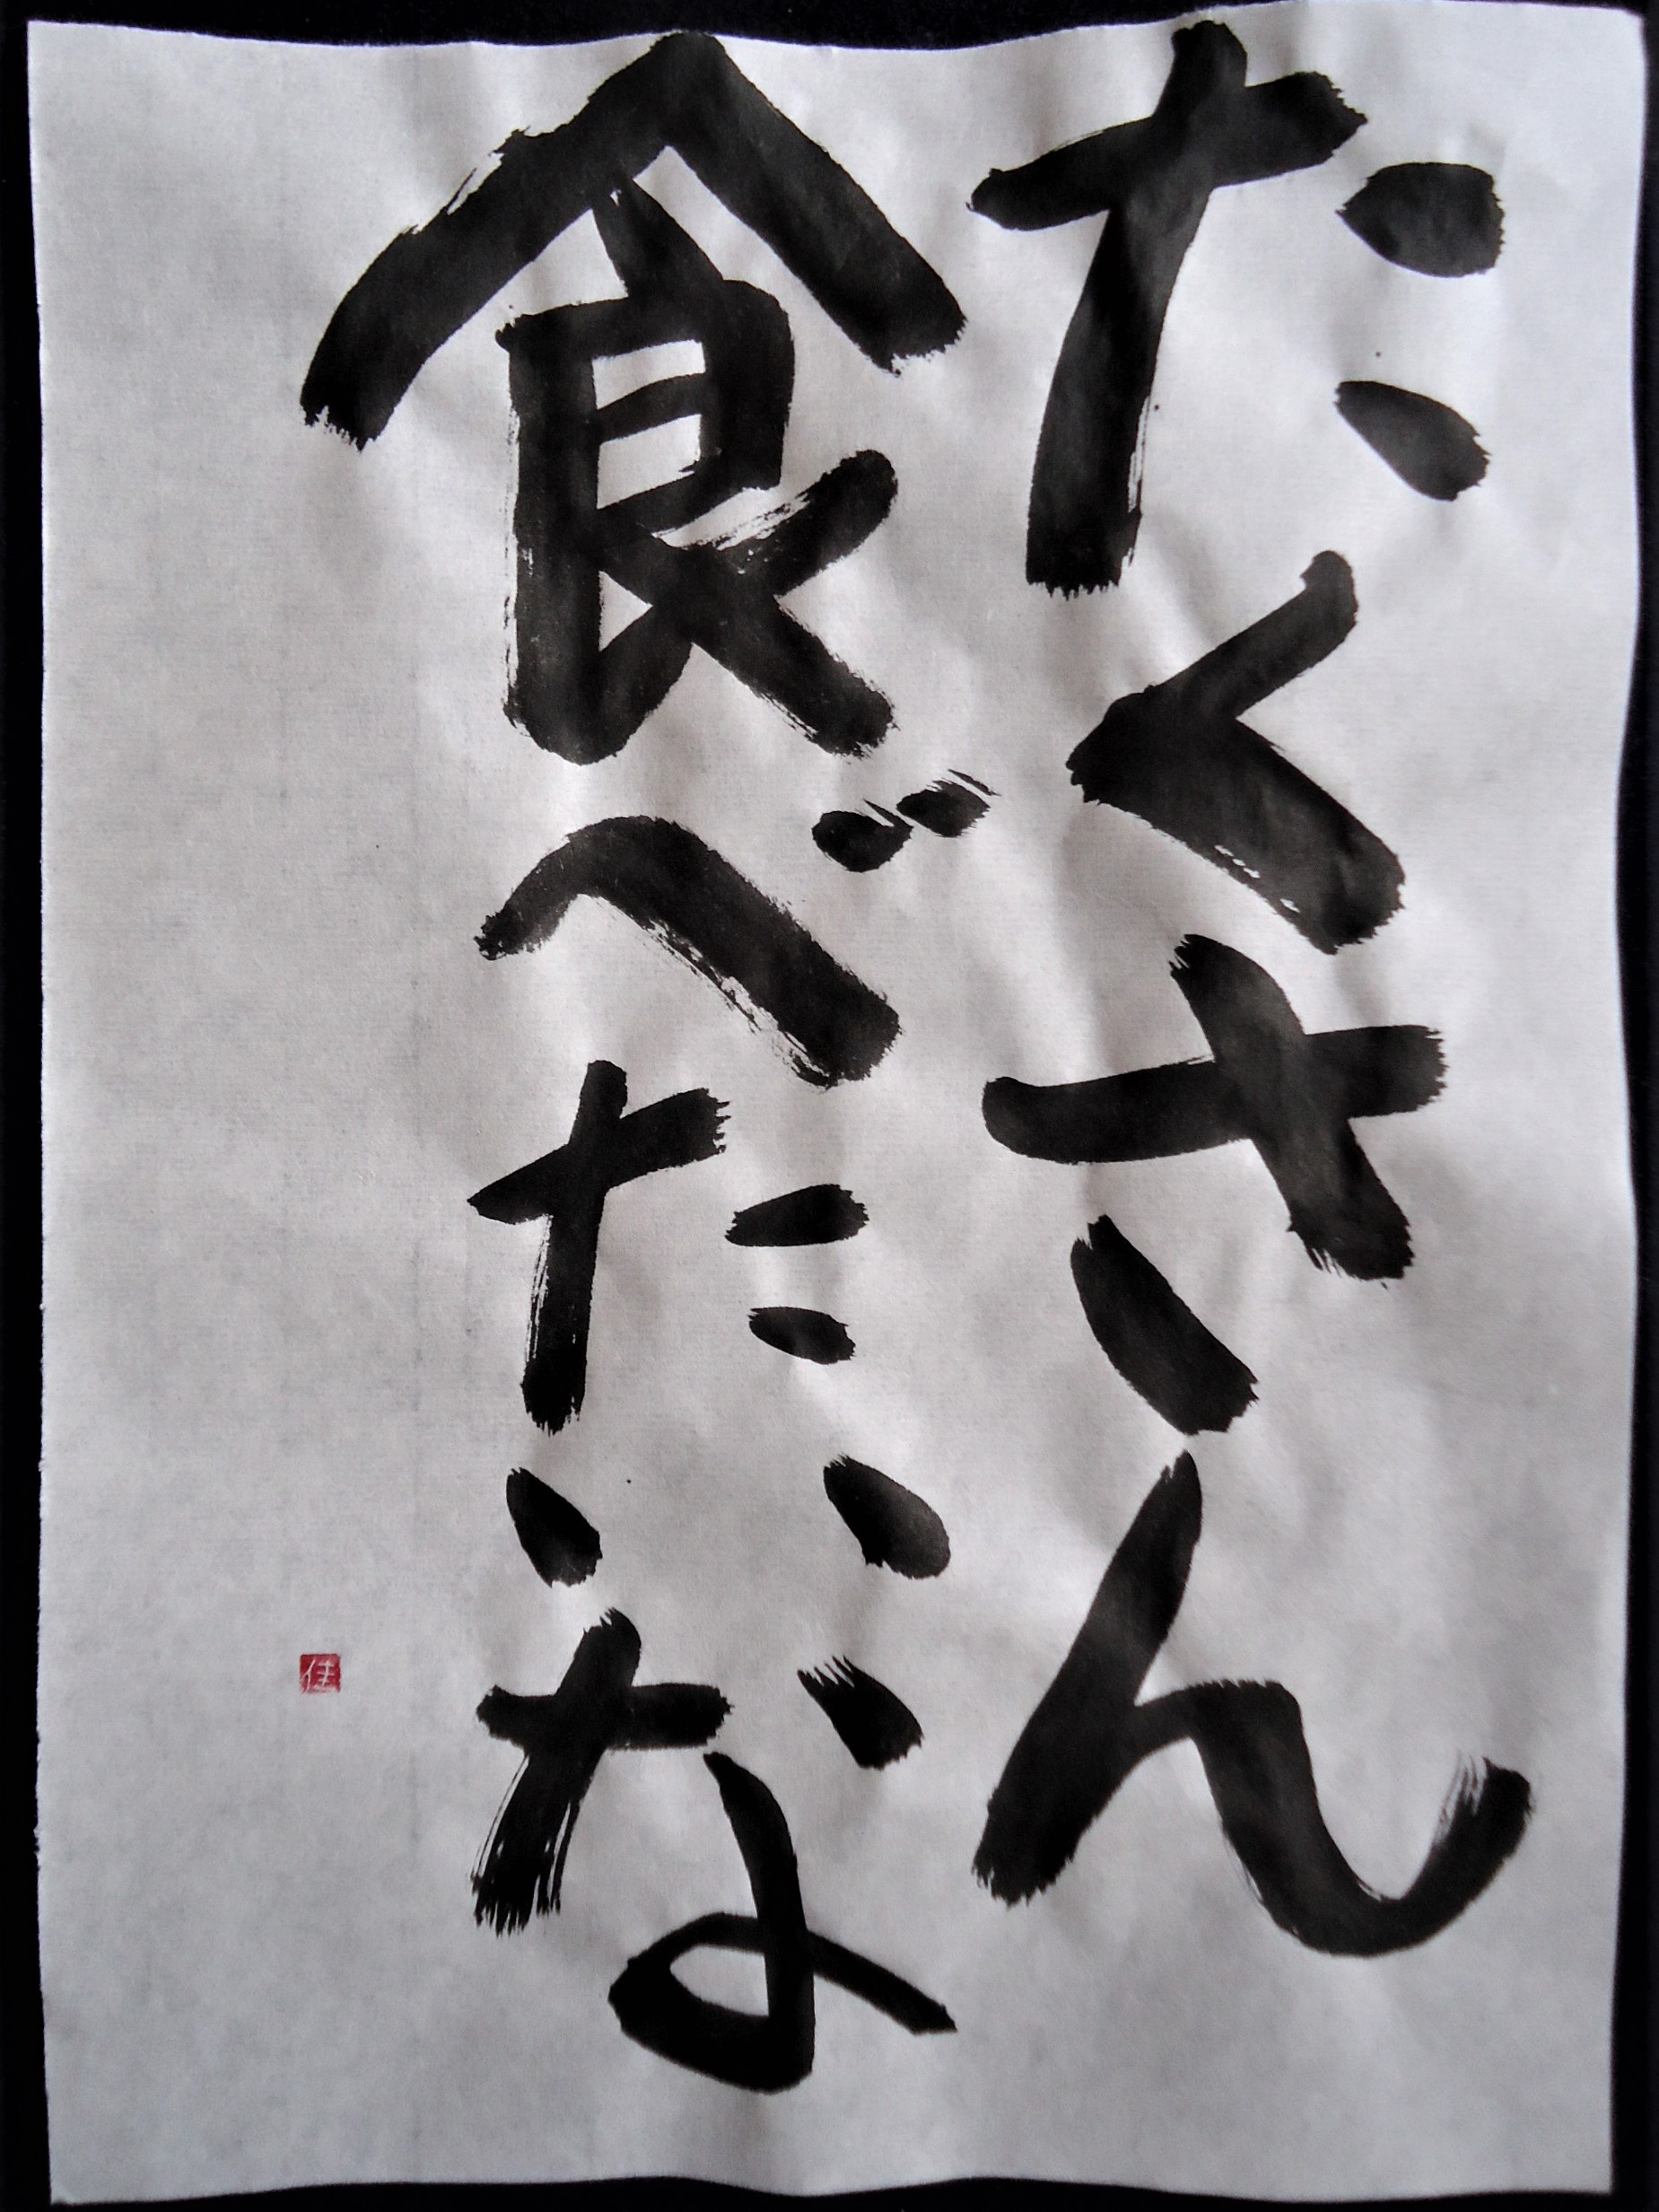 たくさん
食べたいな
佳